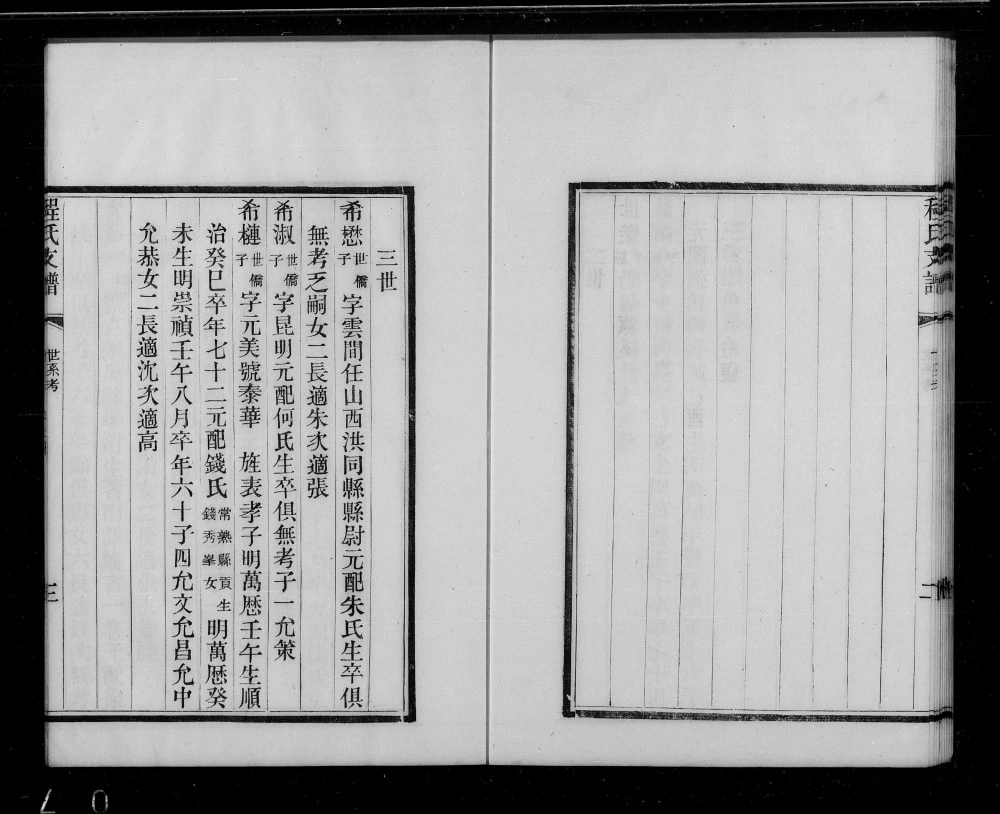 程氏支譜
二
三世
希懋世儒子字雲間任山西洪同縣縣尉元配朱氏生卒俱
無考乏嗣女二長適朱次適張
希淑世儒子字昆明元配何氏生卒俱無考子一允策
希槤世儒子字元美號泰華 旌表孝子明萬厯壬午生順
治癸巳卒年七十二元配錢氏常熟縣貢生錢秀峯女明萬厯癸
未生明崇禎壬午八月卒年六十子四允文允昌允中
允恭女二長適沈次適高
程氏支譜
世系考
三